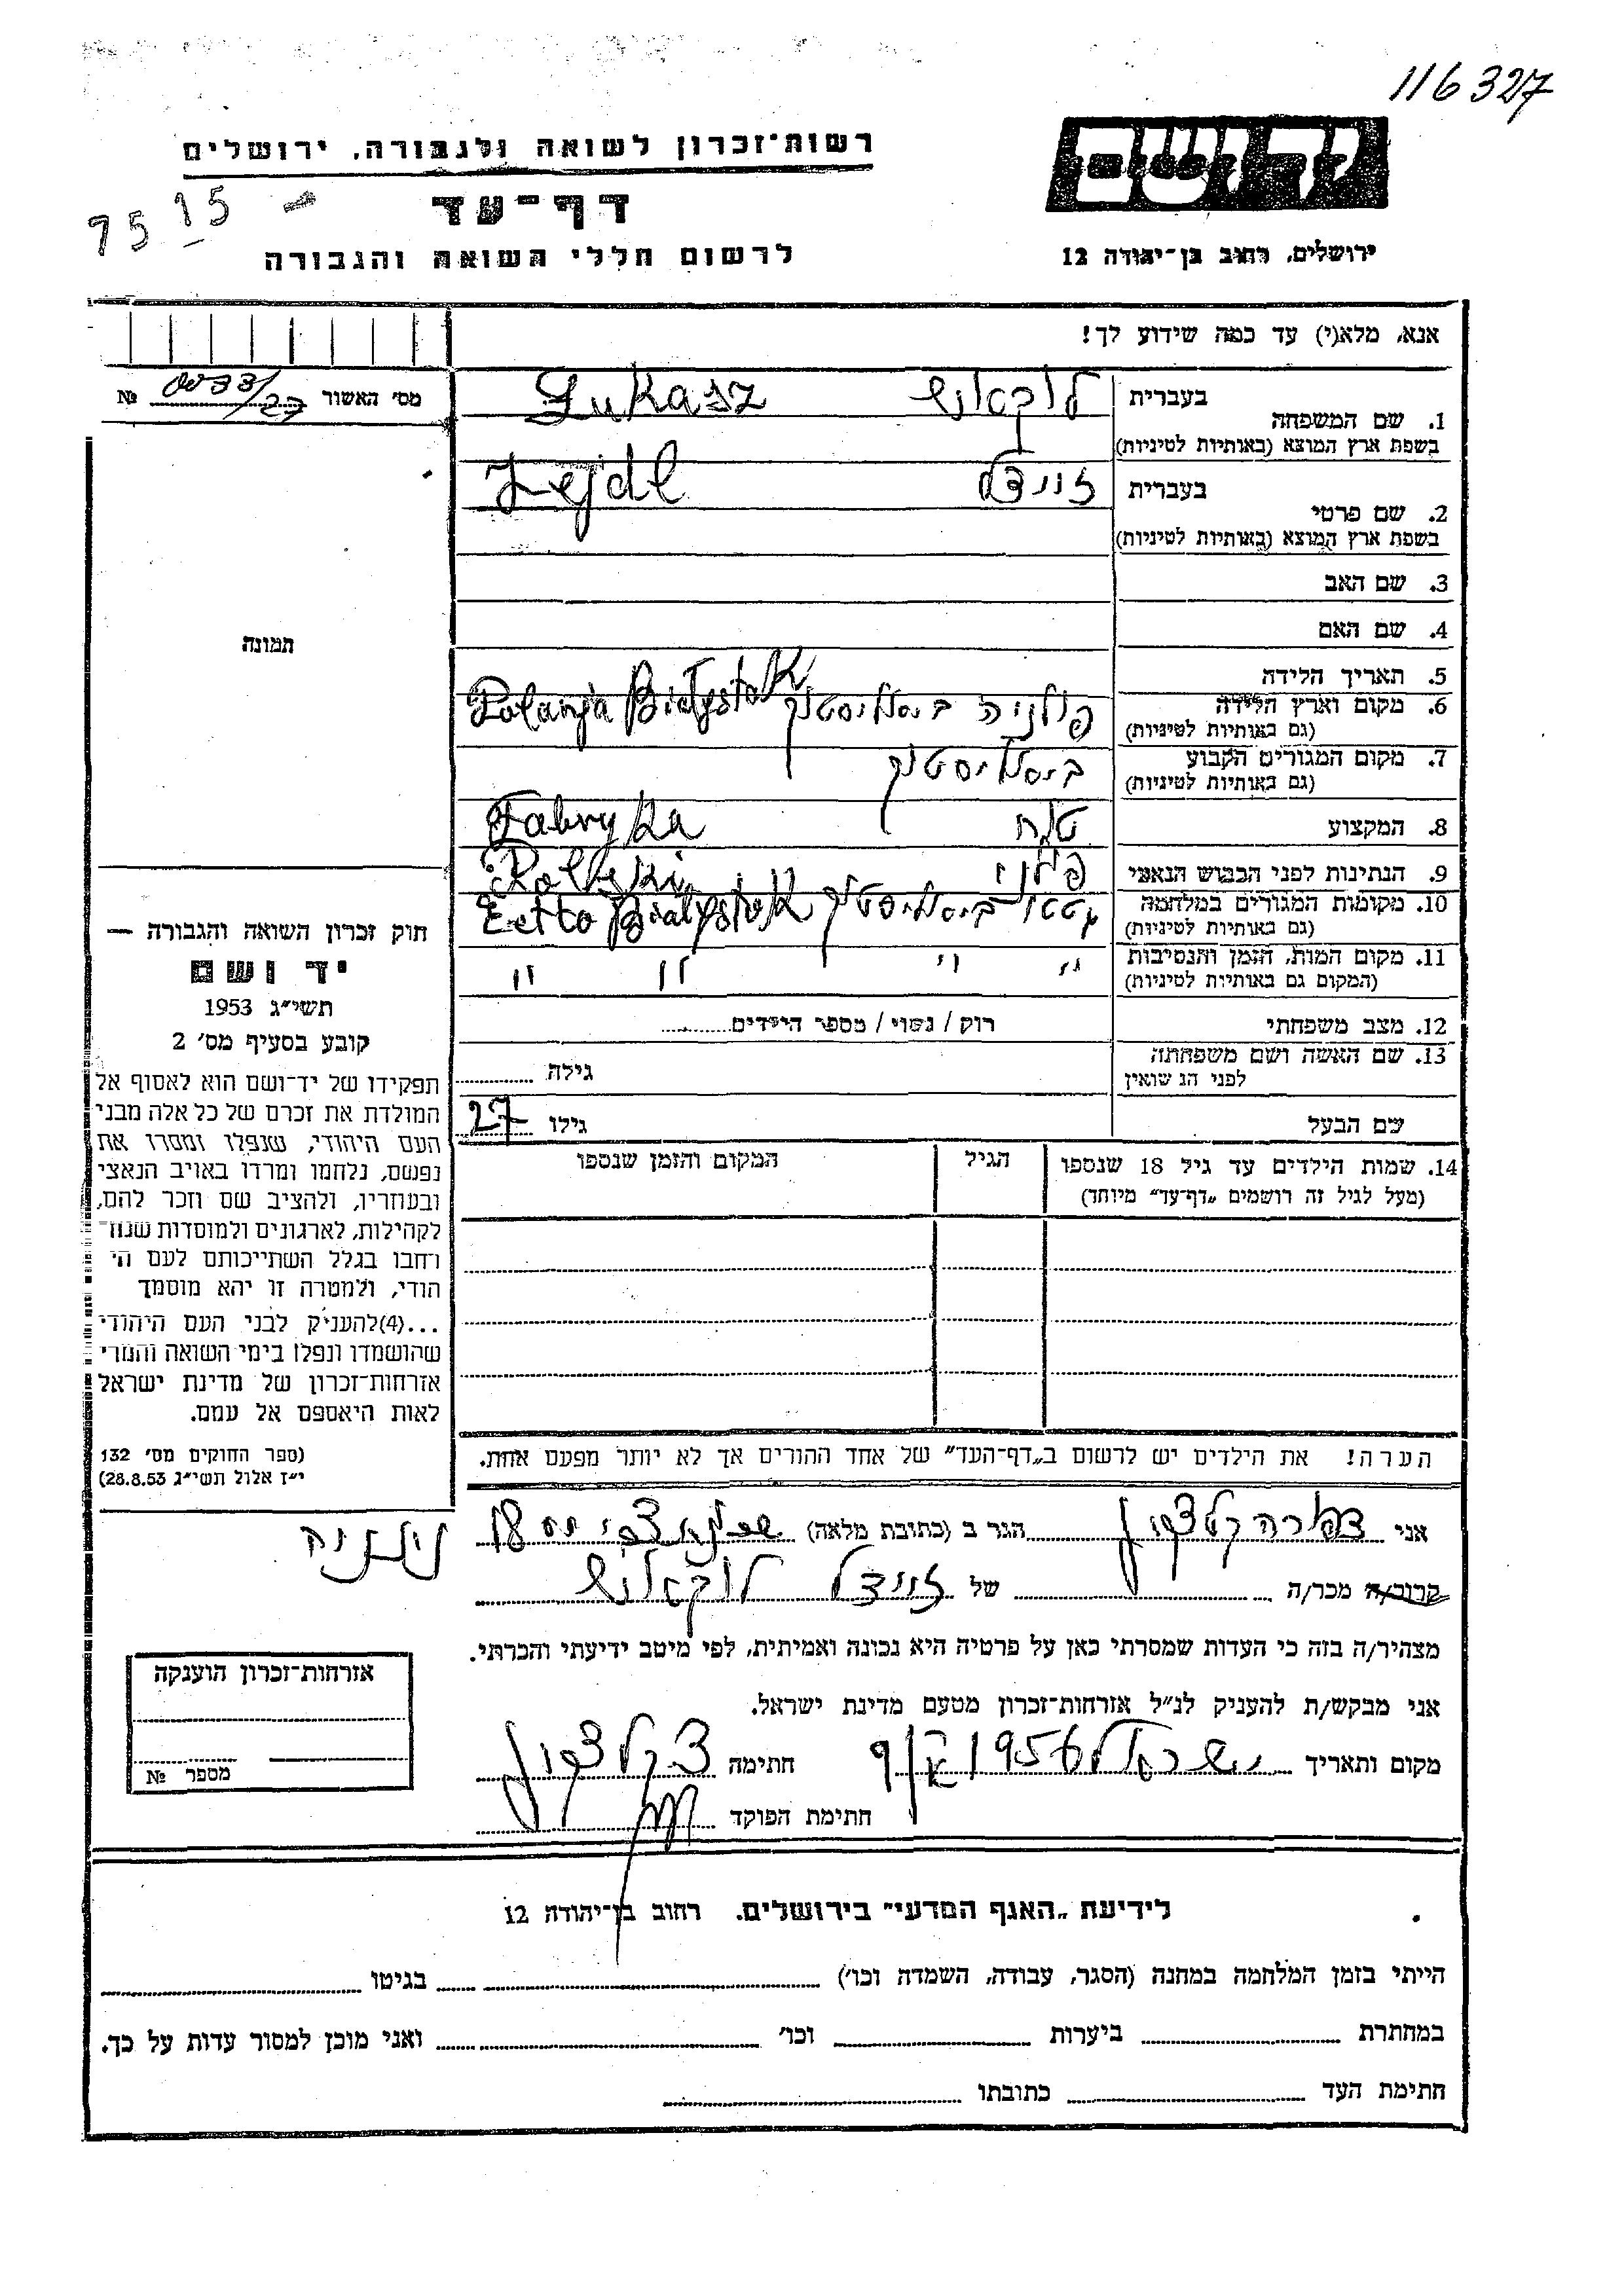 116327
רשות־זכרון לשואה ולגבורה, ירושלים
יד ושם
דף־עד
7515
לרשום חללי השואה והגבורה
ירושלים, רחוב בן־יהודה 12
אנא, מלא(י) עד כמה שידוע לך!
מס׳ האשור №
1. שם המשפחה
בעברית לוקאש Lukasz
בשפת ארץ המוצא (באותיות לטיניות)
2. שם פרטי
בעברית זיידל Zejdl
בשפת ארץ המוצא (באותיות לטיניות)
3. שם האב
4. שם האם
5. תאריך הלידה
6. מקום וארץ הלידה פולניה ביאליסטוק Polanja Bialystok
(גם באותיות לטיניות)
7. מקום המגורים הקבוע ביאליסטוק
(גם באותיות לטיניות)
8. המקצוע Fabryka
9. הנתינות לפני הכבוש הנאצי פולני
10. מקומות המגורים במלחמה גטו ביאליסטוק Getto Bialystok
(גם באותיות לטיניות)
11. מקום המות, הזמן והנסיבות " " " "
(המקום גם באותיות לטיניות)
12. מצב משפחתי רוק / נשוי / מספר הילדים
13. שם האשה ושם משפחתה גילה
לפני הנשואין
שם הבעל גילו 27
14. שמות הילדים עד גיל 18 שנספו הגיל המקום והזמן שנספו
(מעל לגיל זה רושמים „דף־עד״ מיוחד)
הערה! את הילדים יש לרשום ב„דף־העד״ של אחד ההורים אך לא יותר מפעם אחת.
תמונה
חוק זכרון השואה והגבורה —
יד ושם
תשי״ג 1953
קובע בסעיף מס׳ 2
תפקידו של יד־ושם הוא לאסוף אל
המולדת את זכרם של כל אלה מבני
העם היהודי, שנפלו ומסרו את
נפשם, נלחמו ומרדו באויב הנאצי
ובעוזריו, ולהציב שם וזכר להם,
לקהילות, לארגונים ולמוסדות שנח־
רבו בגלל השתייכותם לעם הי־
הודי, ולמטרה זו יהא מוסמך
...(4)להעניק לבני העם היהודי
שהושמדו ונפלו בימי השואה והמרי
אזרחות־זכרון של מדינת ישראל
לאות היאספם אל עמם.
(ספר החוקים מס׳ 132
י״ז אלול תשי״ג 28.8.53)
אני צפורה קלצקין הגר ב (כתובת מלאה) 18 נתניה
קרוב/ה מכר/ה של זיידל לוקאש
מצהיר/ה בזה כי העדות שמסרתי כאן על פרטיה היא נכונה ואמיתית, לפי מיטב ידיעתי והכרתי.
אני מבקש/ת להעניק לנ״ל אזרחות־זכרון מטעם מדינת ישראל.
מקום ותאריך ישראל 1956 חתימה צ. קלצקין
חתימת הפוקד
אזרחות־זכרון הוענקה
מספר №
לידיעת „האגף המדעי״ בירושלים. רחוב בן־יהודה 12
הייתי בזמן המלחמה במחנה (הסגר, עבודה, השמדה וכו׳) בגיטו
במחתרת ביערות וכו׳ ואני מוכן למסור עדות על כך.
חתימת העד כתובתו